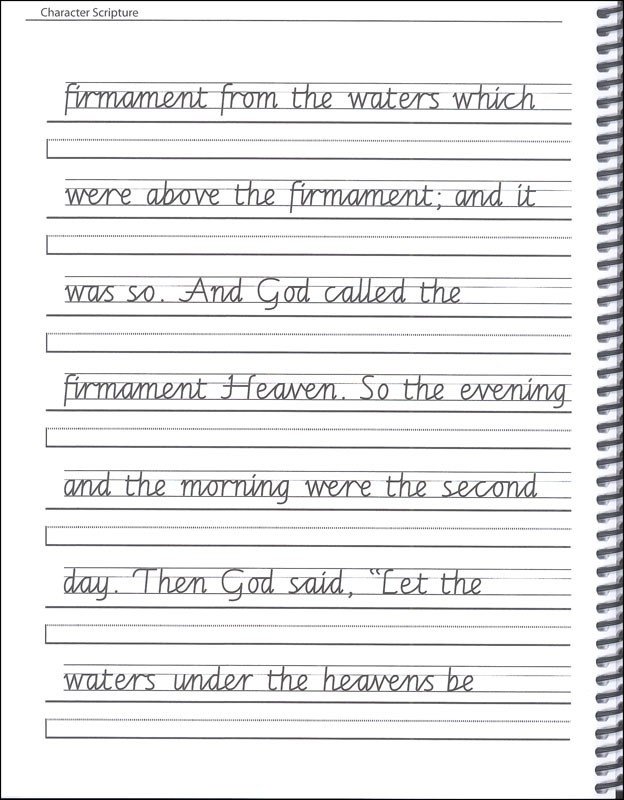 Character Scripture
firmament from the waters which
were above the firmament; and it
was so. And God called the
firmament Heaven. So the evening
and the morning were the second
day. Then God said, “Let the
waters under the heavens be